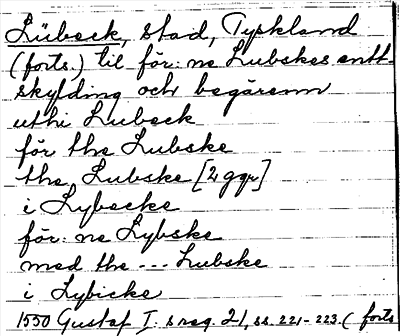 Lübeck, stad, Tyskland
(forts.) til för:ne Lubskes entt-
skylding och begärenn
uthi Lubeck
för the Lubske
the Lubske [2 ggr]
i Lybecke
för:ne Lybske
med the --- Lubske
i Lybicke
1550 Gustaf I:s reg. 21, ss. 221-223. ( forts